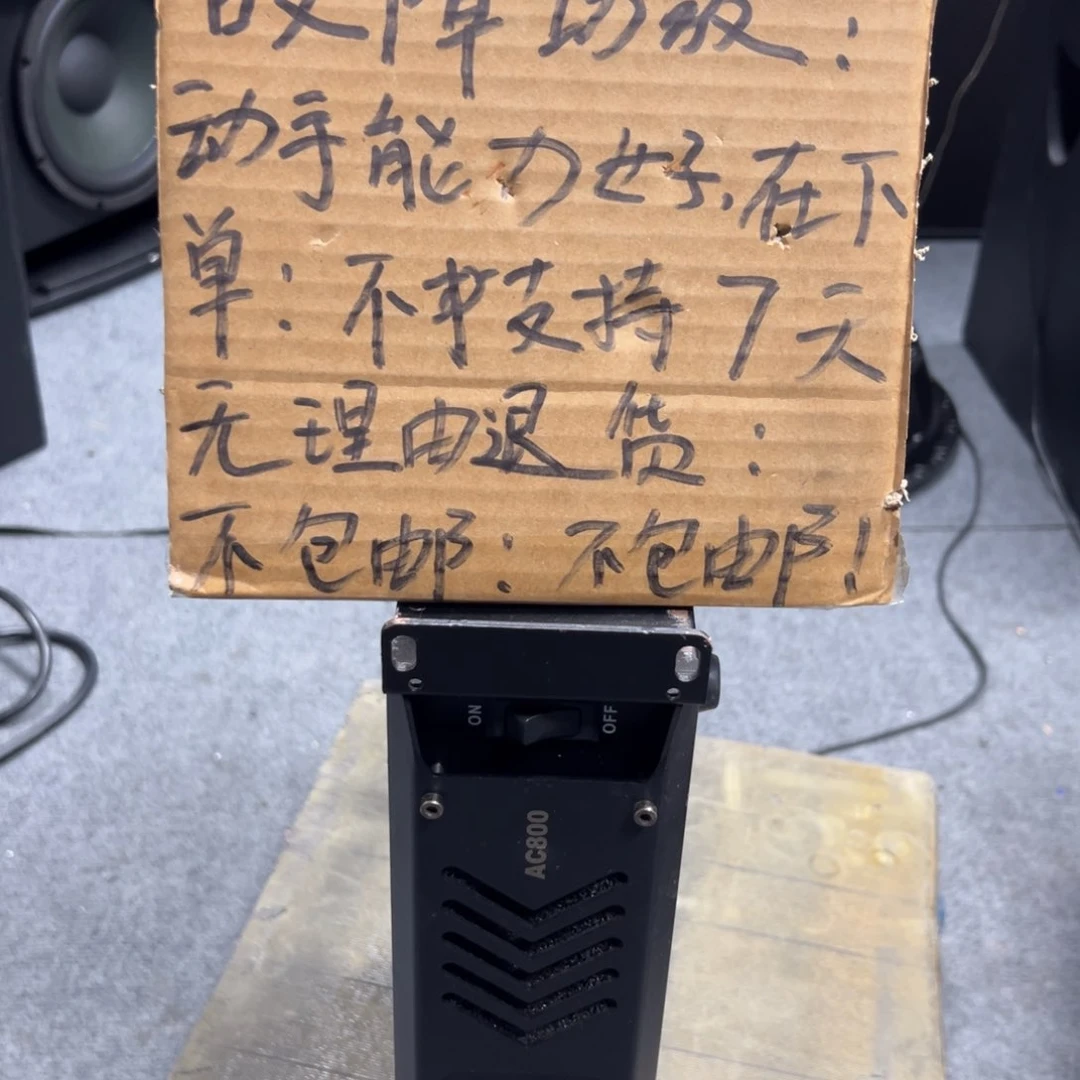 故障功放：
动手能力好,在下
单：不支持7天
无理由退货：
不包邮：不包邮！
ON
OFF
AC800